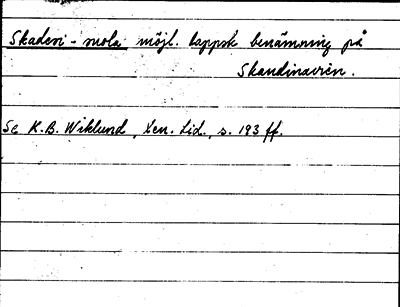 Skadesi-suola möjl. lappsk benämning på
Skandinavien.
Se K.B. Wiklund, Ven. tid., s. 193 ff.